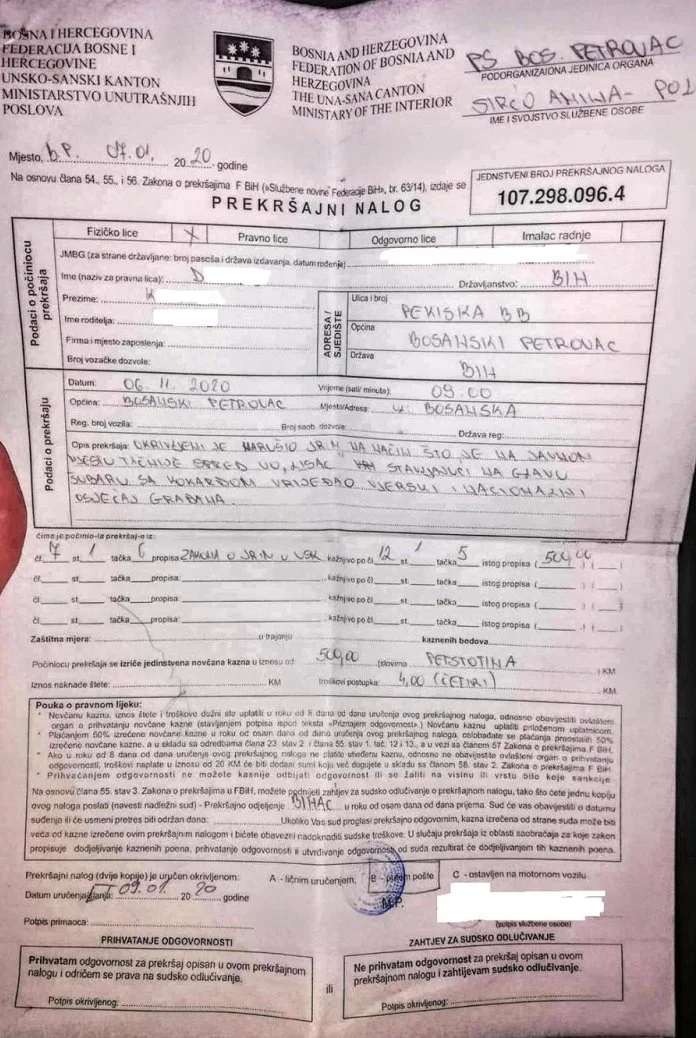 BOSNA I HERCEGOVINA
FEDERACIJA BOSNE I
HERCEGOVINE
UNSKO-SANSKI KANTON
MINISTARSTVO UNUTRAŠNJIH
POSLOVA
BOSNIA AND HERZEGOVINA
FEDERATION OF BOSNIA AND
HERZEGOVINA
THE UNA-SANA CANTON
MINISTRY OF THE INTERIOR
PS BOS. PETROVAC
PODORGANIZAIONA JEDINICA ORGANA
IME I SVOJSTVO SLUŽBENE OSOBE
Mjesto, B.P. 07.01. 20 20 godine
Na osnovu člana 54., 55., i 56. Zakona o prekršajima F BiH («Službene novine Federacije BiH», br. 63/14), izdaje se
JEDNSTVENI BROJ PREKRŠAJNOG NALOGA
107.298.096.4
PREKRŠAJNI NALOG
Podaci o počiniocu prekršaja
Fizičko lice X Pravno lice Odgovorno lice Imalac radnje
JMBG (za strane državljane: broj pasoša i država izdavanja, datum rođenja)
Ime (naziv za pravna lica): D Državljanstvo: BIH
Prezime: K
Ime roditelja:
Firma i mjesto zaposlenja:
Broj vozačke dozvole:
ADRESA / SJEDIŠTE
Ulica i broj PEKISKA BB
Općina BOSANSKI PETROVAC
Država BIH
Podaci o prekršaju
Datum: 06. 11. 2020 Vrijeme (sati/ minuta): 09.00
Općina: BOSANSKI PETROVAC Mjesto/Adresa: ul. BOSANSKA
Reg. broj vozila: Broj saob. dozvole: Država reg:
Opis prekršaja: OKRIVLJENI JE NARUŠIO JRIM NA NAČIN ŠTO JE NA JAVNOM
MJESTU TAČNIJE ISPRED UO,,LISAC" STAVLJAJUĆI NA GLAVU
ŠUBARU SA KOKARDOM VRIJEĐAO VJERSKI I NACIONALNI
OSJEĆAJ GRAĐANA.
čime je počinio-la prekršaj-e iz:
čl. 7 st. 1 tačka 6 propisa ZAKONA O JRIM U USK, kažnjivo po čl. 12 st. 1 tačka 5 istog propisa ( 500,00 ) ( )
čl. st. tačka propisa: , kažnjivo po čl. st. tačka istog propisa ( ) ( )
čl. st. tačka propisa: , kažnjivo po čl. st. tačka istog propisa ( ) ( )
čl. st. tačka propisa: , kažnjivo po čl. st. tačka istog propisa ( ) ( )
Zaštitna mjera: u trajanju kaznenih bodova
Počiniocu prekršaja se izriče jedinstvena novčana kazna u iznosu od: 500,00 (slovima PETSTOTINA ) KM
Iznos naknade štete: KM troškovi postupka: 4,00 (ČETIRI) KM.
Pouka o pravnom lijeku:
* Novčanu kaznu, iznos štete i troškove dužni ste uplatiti u roku od 8 dana od dana uručenja ovog prekršajnog naloga, odnosno obavijestiti ovlašteni
organ o prihvatanju novčane kazne (stavljanjem potpisa ispod teksta «Priznajem odgovornost»). Novčanu kaznu uplatiti priloženom uplatnicom.
* Plaćanjem 50% izrečene novčane kazne u roku od osam dana od dana uručenja ovog prekršajnog naloga, oslobađate se plaćanja preostalih 50%
izrečene novčane kazne, a u skladu sa odredbama člana 23. stav 2. i člana 55. stav 1. tač. 12 i 13., a u vezi sa članom 57 Zakona o prekršajima F BiH.
* Ako u roku od 8 dana od dana uručenja ovog prekršajnog naloga ne platite utvrđenu kaznu, odnosno ne obavijestite ovlašteni organ o prihvatanju
odgovornosti, troškovi naplate u iznosu od 20 KM će biti dodani sumi koju već dugujete u skladu sa članom 58. stav 2. Zakona o prekršajima F BiH.
* Prihvaćanjem odgovornosti ne možete kasnije odbijati odgovornost ili se žaliti na visinu ili vrstu bilo koje sankcije
Na osnovu člana 55. stav 3. Zakona o prekršajima u FBiH, možete podnijeti zahtjev za sudsko odlučivanje o prekršajnom nalogu, tako što ćete jednu kopiju
ovog naloga poslati (navesti nadležni sud) - Prekršajno odjeljenje BIHAĆ u roku od osam dana od dana prijema. Sud će vas obavijestiti o datumu
suđenja ili će usmeni pretres biti održan dana: Ukoliko Vas sud proglasi prekršajno odgovornim, kazna izrečena od strane suda može biti
veća od kazne izrečene ovim prekršajnim nalogom i bićete obavezni nadoknaditi sudske troškove. U slučaju prekršaja iz oblasti saobraćaja za koje zakon
propisuje dodjeljivanje kaznenih poena, prihvatanje odgovornosti ili utvrđivanje odgovornosti od suda rezultirat će dodjeljivanjem tih kaznenih poena.
Prekršajni nalog (dvije kopije) je uručen okrivljenom: A - ličnim uručenjem, B - putem pošte C - ostavljen na motornom vozilu
Datum uručenja/slanja: 09.01. 20 20 godine
M.P.
Potpis primaoca: (potpis službene osobe)
PRIHVATANJE ODGOVORNOSTI
Prihvatam odgovornost za prekršaj opisan u ovom prekršajnom
nalogu i odričem se prava na sudsko odlučivanje.
Potpis okrivljenog:
ili
ZAHTJEV ZA SUDSKO ODLUČIVANJE
Ne prihvatam odgovornost za prekršaj opisan u ovom
prekršajnom nalogu i zahtijevam sudsko odlučivanje.
Potpis okrivljenog: